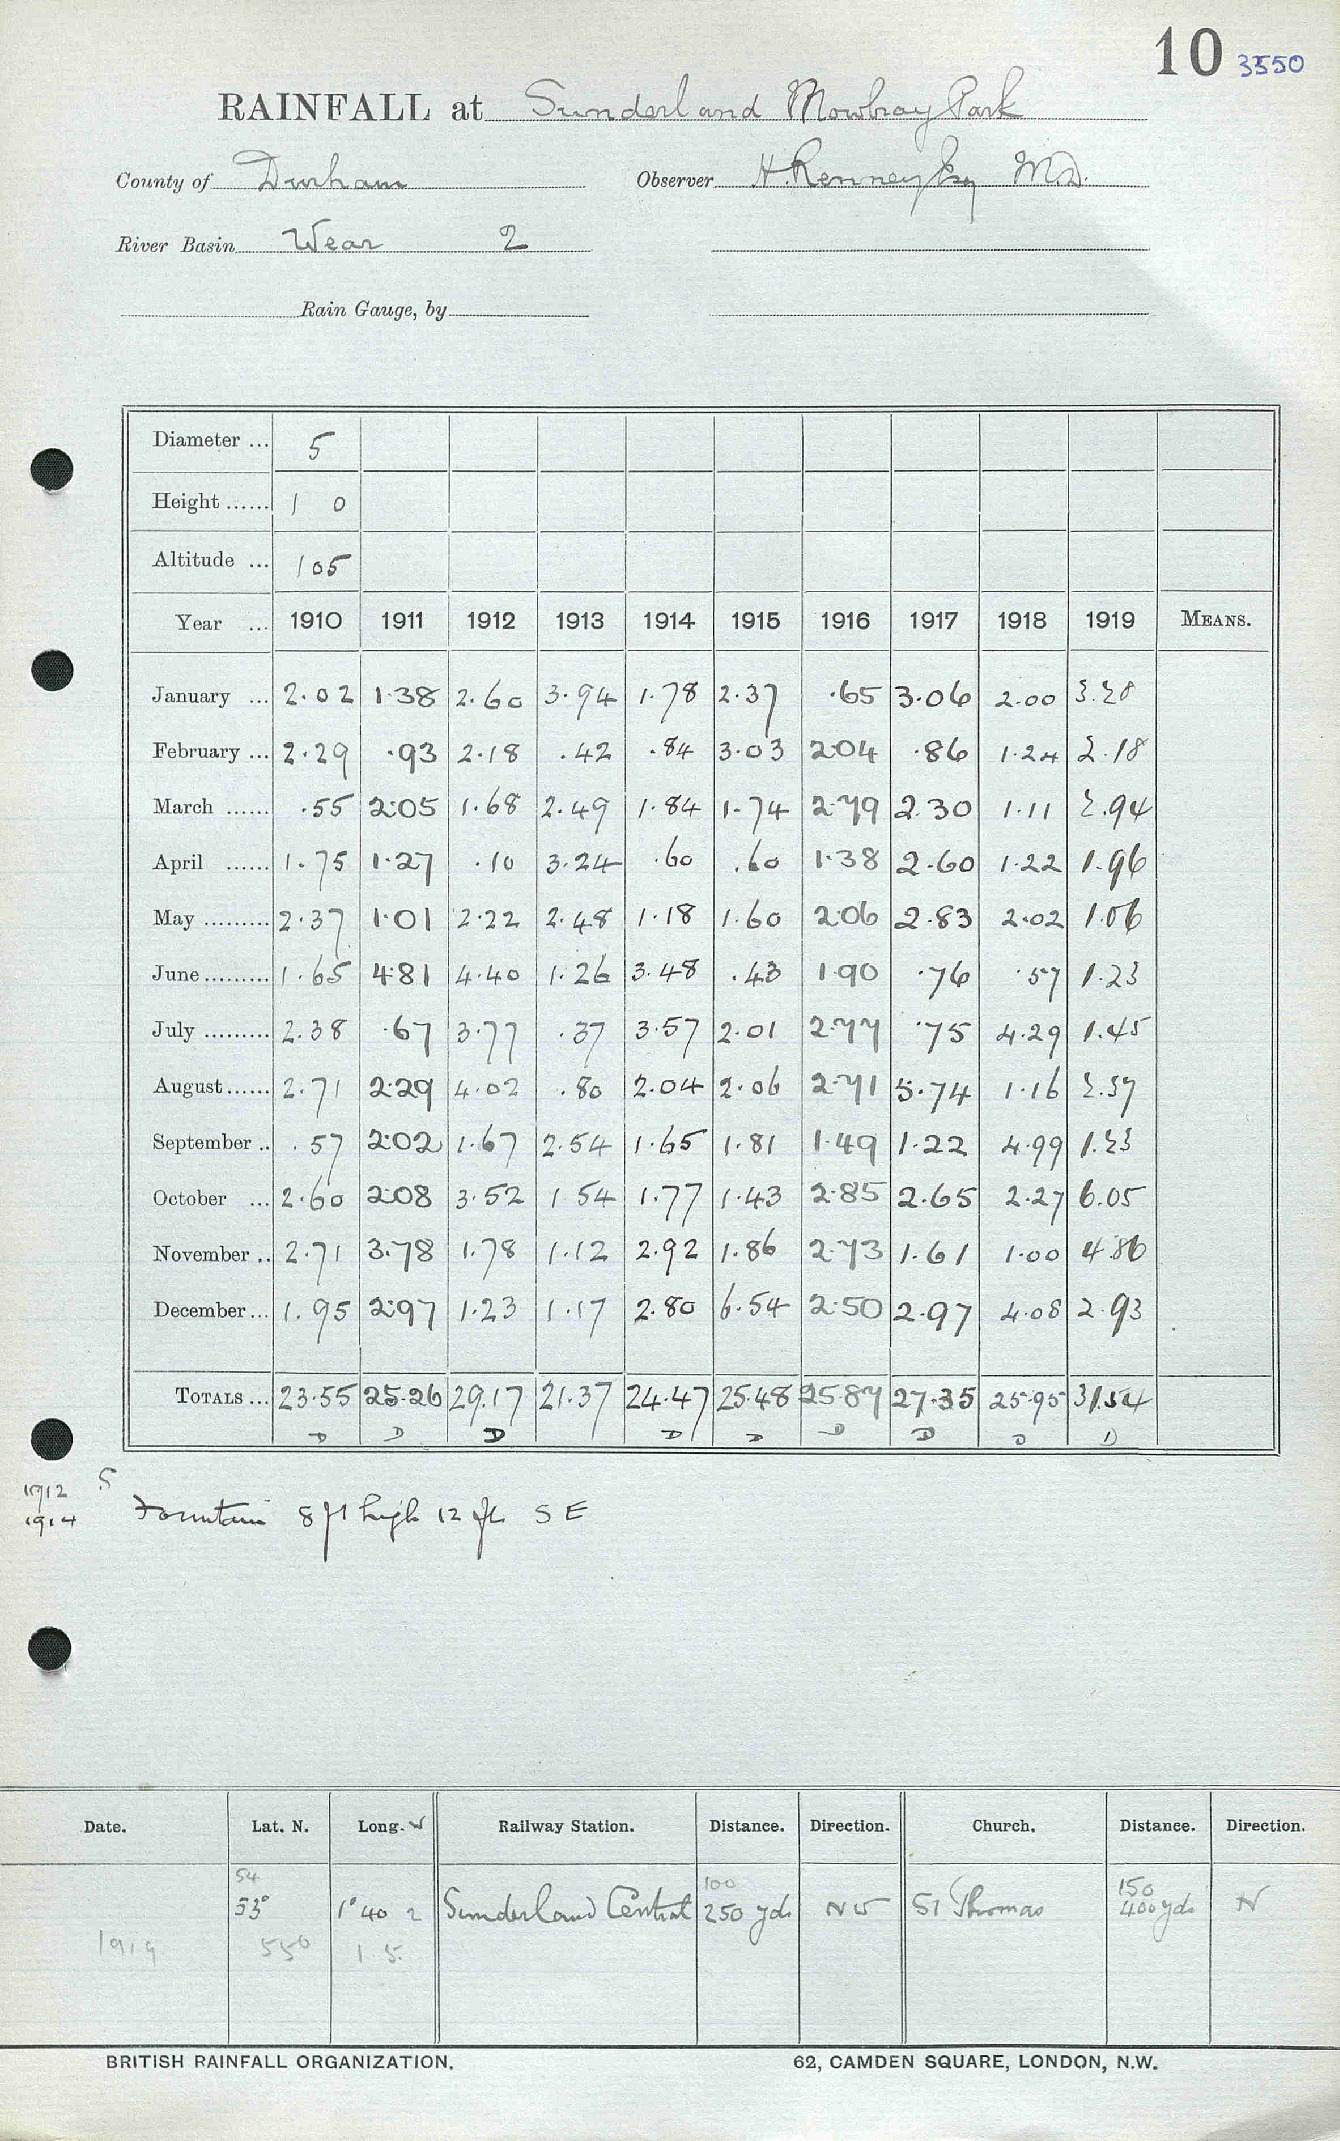 10 3550
RAINFALL at Sunderland Mowbray Park
County of Durham Observer H. Renney Esq M.D.
River Basin Wear 2
Rain Gauge, by
Diameter ... 5
Height ...... 1 0
Altitude ... 105
Year ... 1910 1911 1912 1913 1914 1915 1916 1917 1918 1919 MEANS.
January ... 2.02 1.38 2.60 3.94 1.78 2.37 .65 3.06 2.00 3.28
February ... 2.29 .93 2.18 .42 .84 3.03 2.04 .86 1.24 2.18
March ...... .55 2.05 1.68 2.49 1.84 1.74 2.79 2.30 1.11 2.94
April ...... 1.75 1.27 .10 3.24 .60 .60 1.38 2.60 1.22 1.96
May ......... 2.37 1.01 2.22 2.48 1.18 1.60 2.06 2.83 2.02 1.06
June ......... 1.65 4.81 4.40 1.26 3.48 .43 1.90 .76 .57 1.23
July ......... 2.38 .67 3.77 .37 3.57 2.01 2.77 .75 4.29 1.45
August ...... 2.71 2.29 4.02 .80 2.04 2.06 2.71 5.74 1.16 2.37
September .. .57 2.02 1.67 2.54 1.65 1.81 1.49 1.22 4.99 1.23
October ... 2.60 2.08 3.52 1.54 1.77 1.43 2.85 2.65 2.27 6.05
November .. 2.71 3.78 1.78 1.12 2.92 1.86 2.73 1.61 1.00 4.86
December ... 1.95 2.97 1.23 1.17 2.80 6.54 2.50 2.97 4.08 2.93
TOTALS ... 23.55 25.26 29.17 21.37 24.47 25.48 25.87 27.35 25.95 31.54
D D D D D D D D D
1912 S
1914 Fountain 8 ft high 12 ft S E
Date. Lat. N. Long. W Railway Station. Distance. Direction. Church. Distance. Direction.
54 100 150
53° 1° 40 2 Sunderland Central 250 yds NW St Thomas 400 yds N
1919 550 1 5.
BRITISH RAINFALL ORGANIZATION. 62, CAMDEN SQUARE, LONDON, N.W.